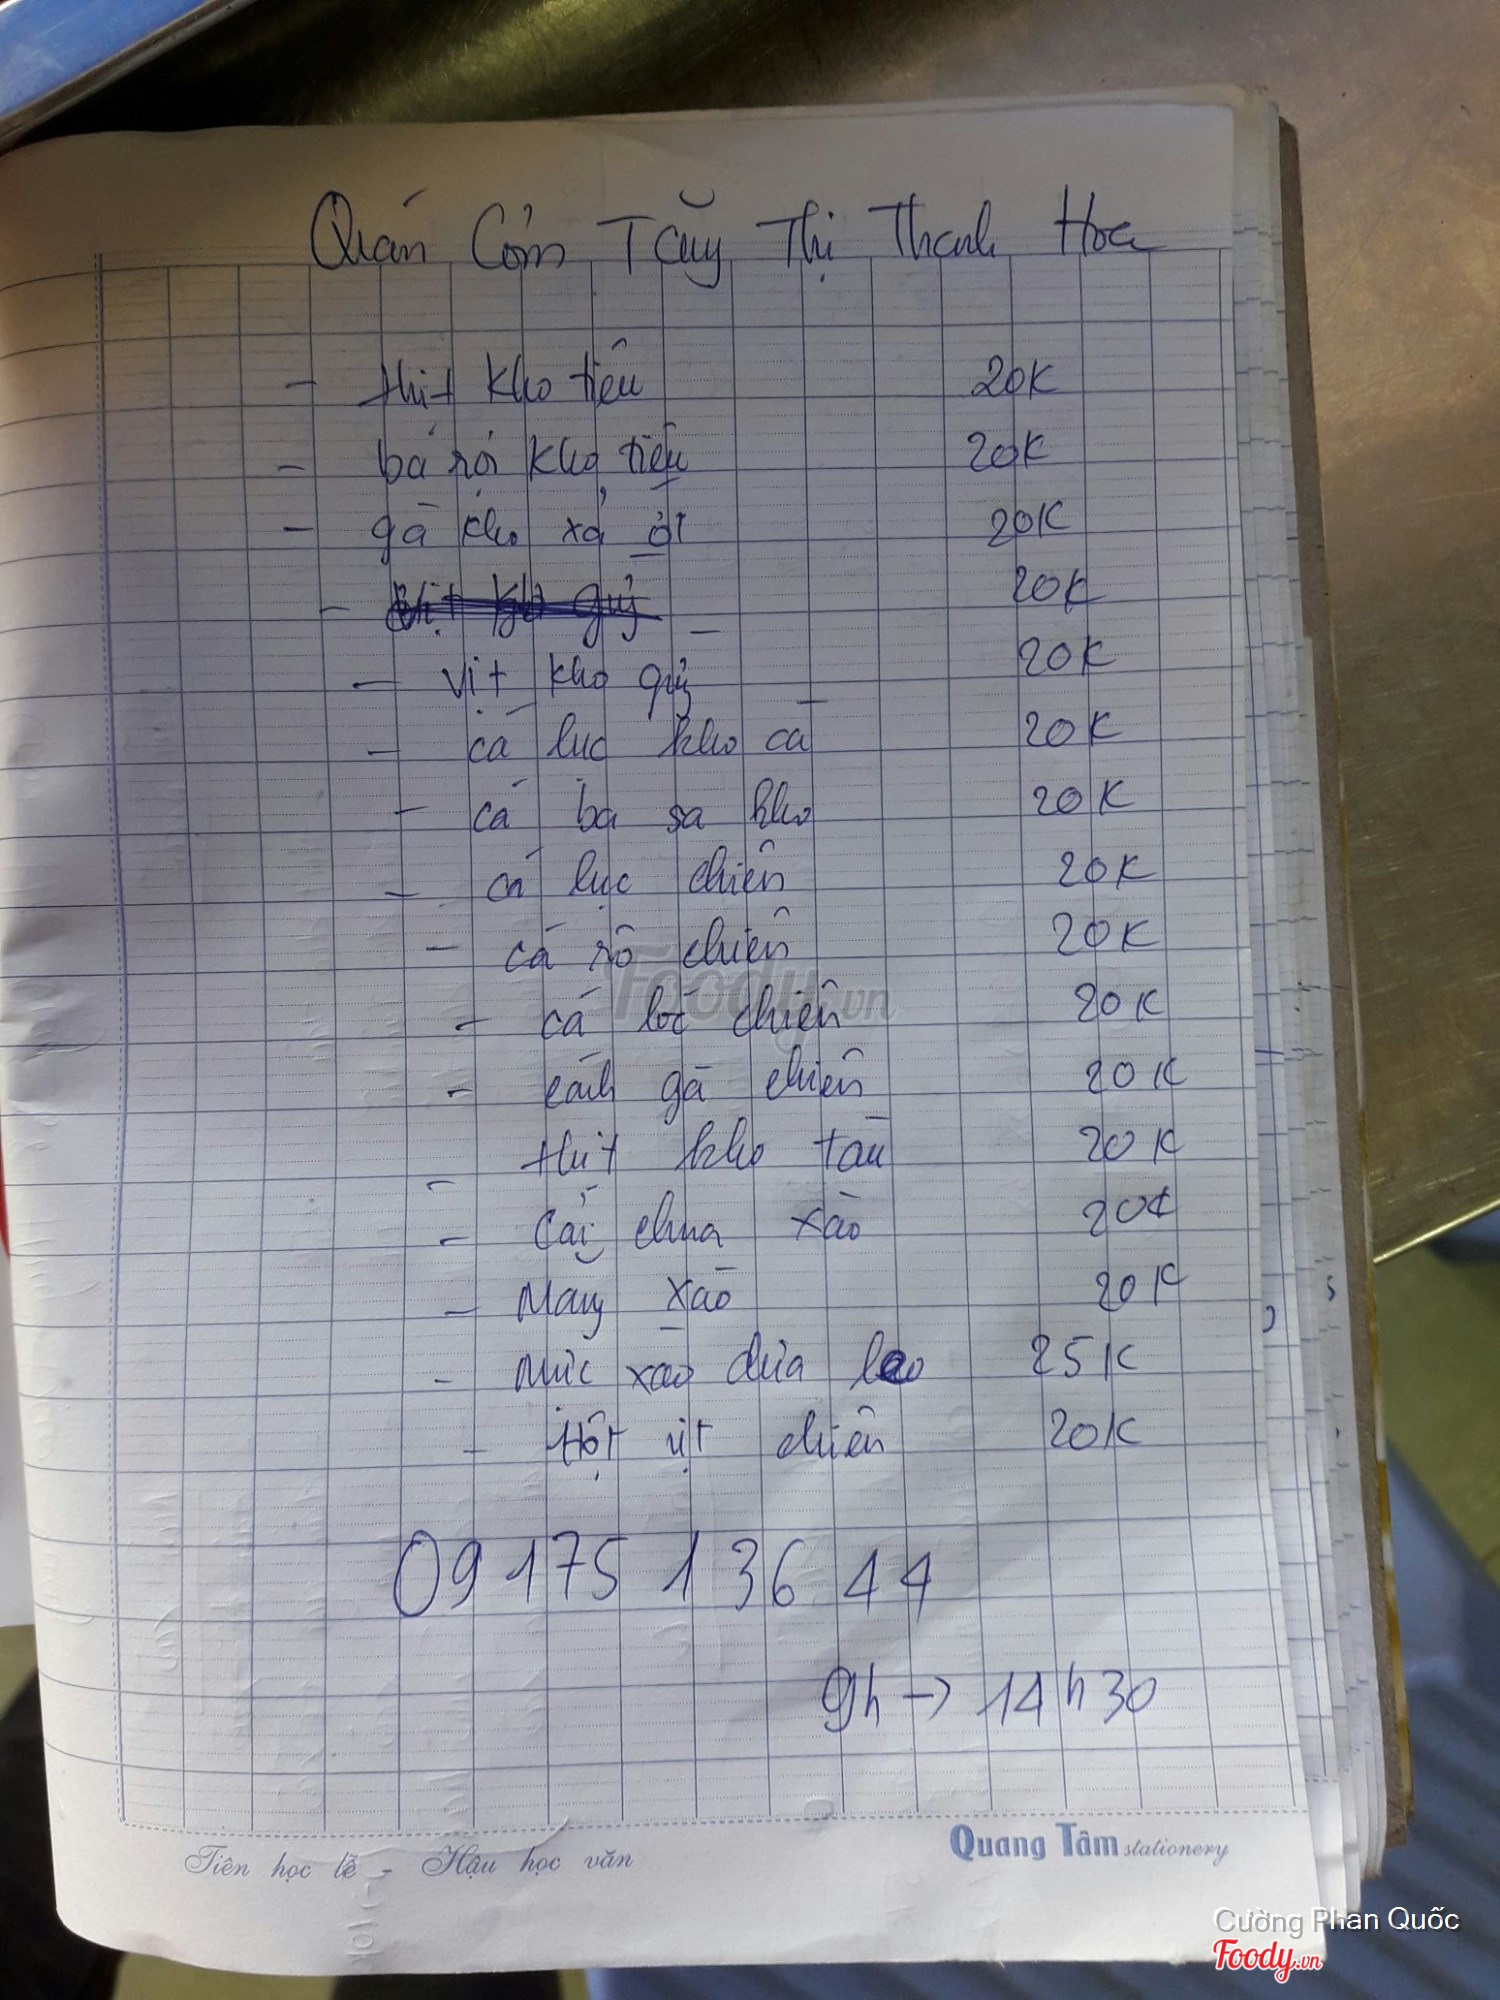 Quán Cơm Tăng Thị Thanh Hoa
- thịt kho tiêu 20K
- ba rọi kho tiêu 20K
- gà kho xả ớt 20K
- 20K
- vịt kho quỷ 20K
- cá lục kho cà 20K
- cá ba sa kho 20K
- cá lục chiên 20K
- cá rô chiên 20K
- cá lóc chiên 20K
- cánh gà chiên 20K
- thịt kho tàu 20K
- Cải chua xào 20K
- Măng xào 20K
- Mực xào dưa leo 25K
- Hột vịt chiên 20K
0917513644
9h → 14h30
Tiên học lễ - Hậu học văn
Quang Tâm stationery
Foody.vn
Cường Phan Quốc
Foody.vn